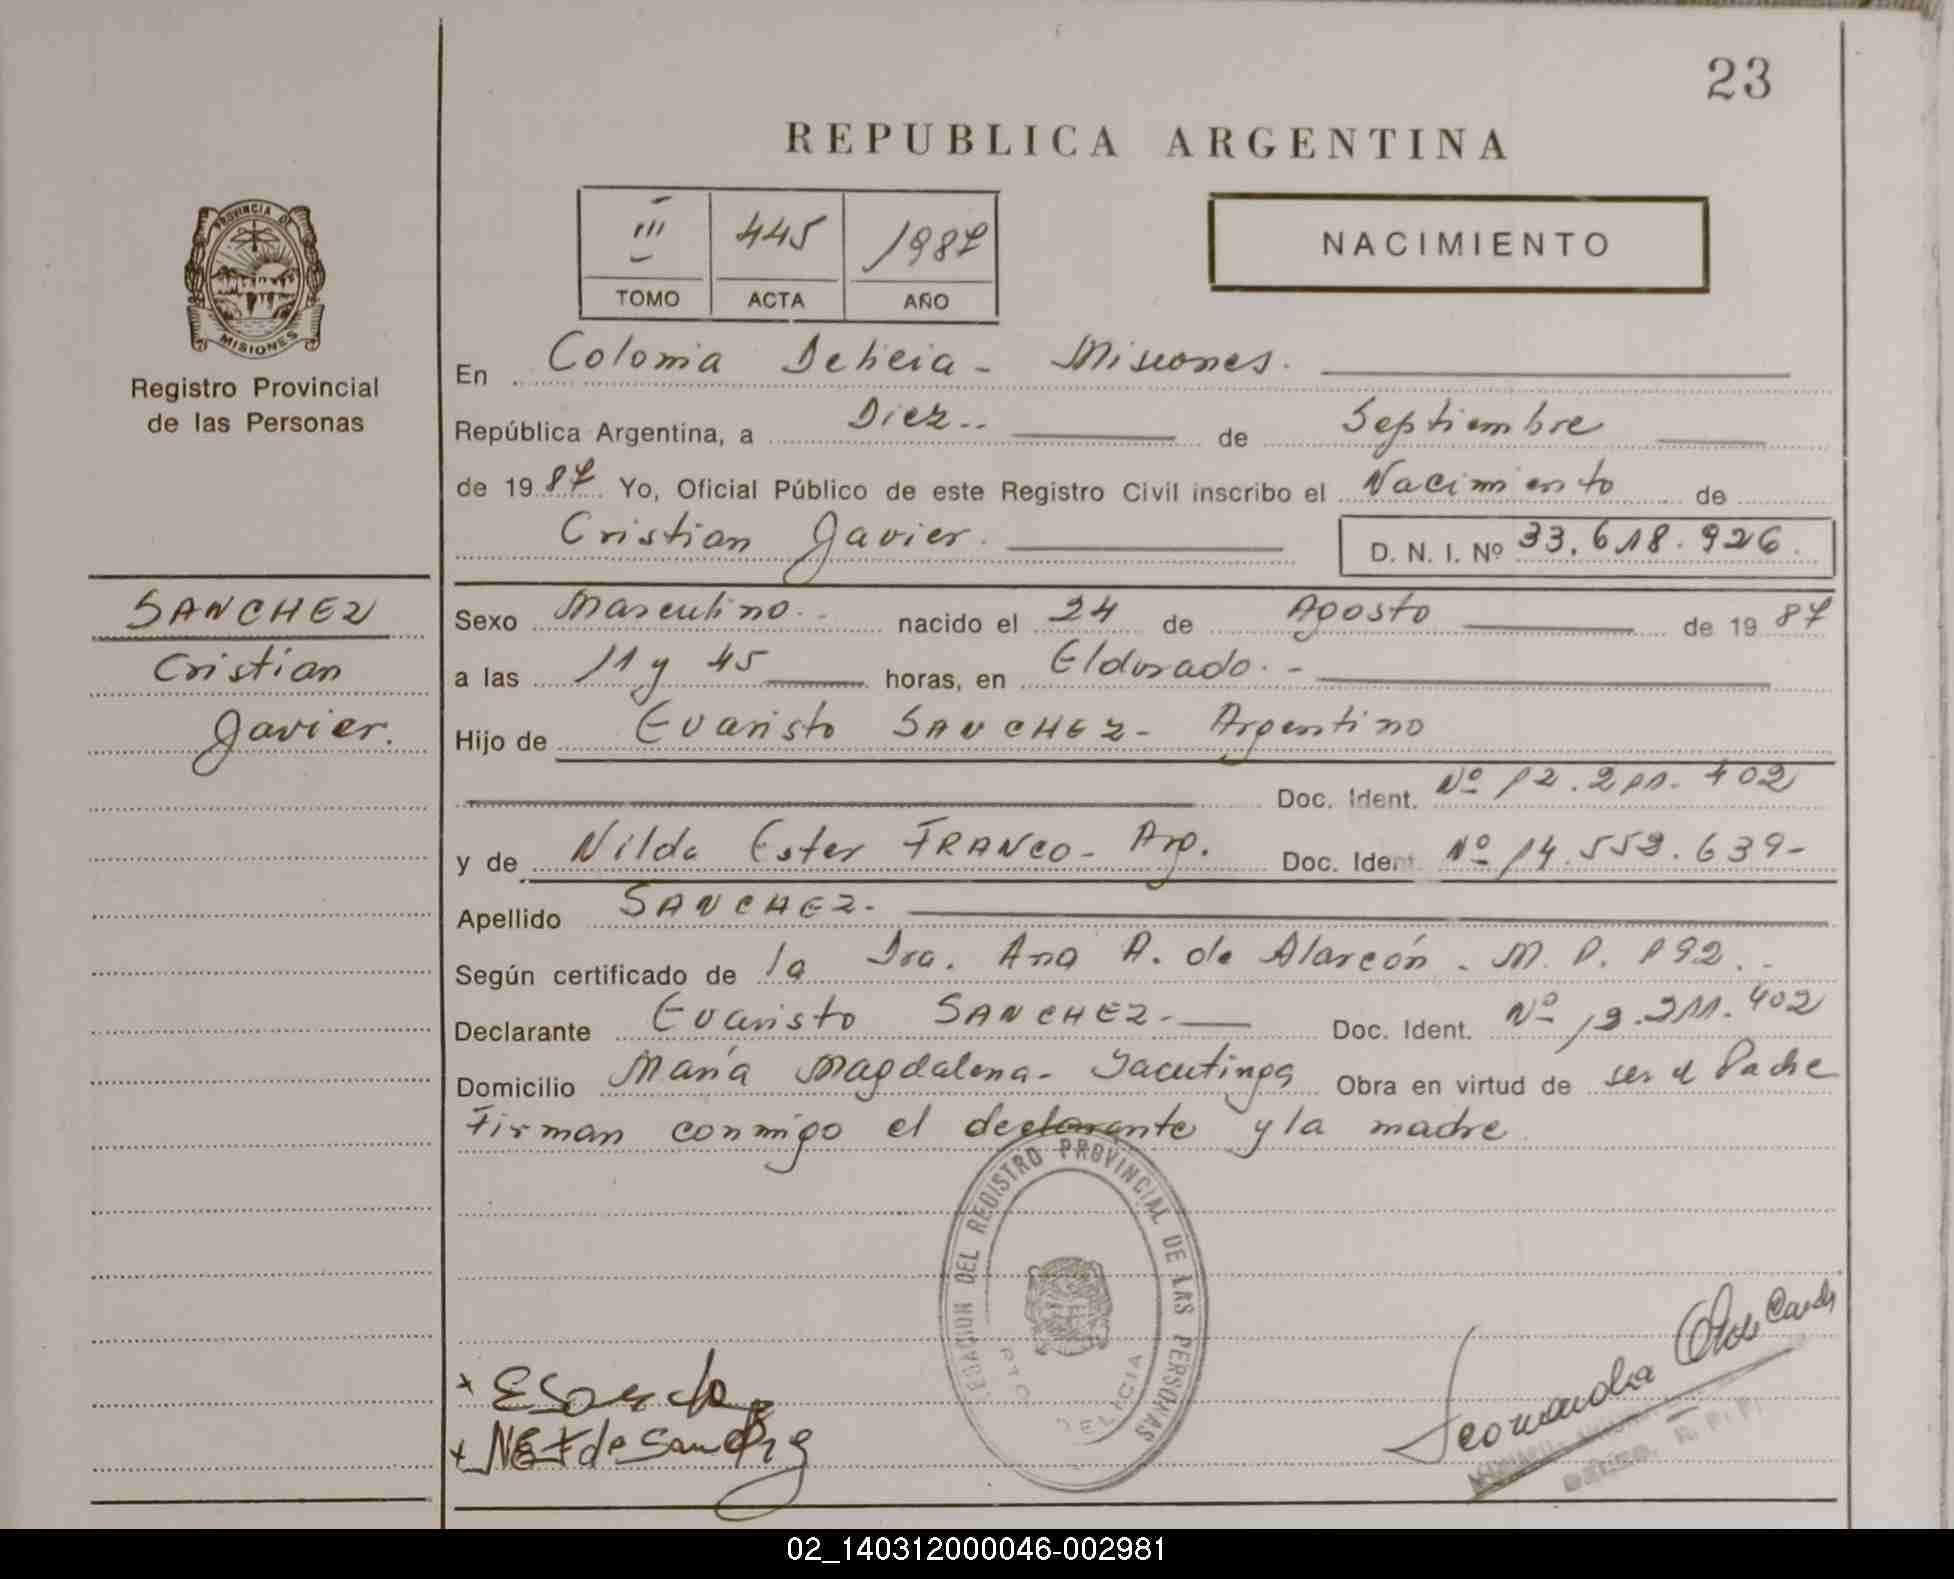 23
REPUBLICA ARGENTINA
III 445 1987
TOMO ACTA AÑO
NACIMIENTO
PROVINCIA DE
MISIONES
Registro Provincial
de las Personas
En Colonia Delicia - Misiones.
República Argentina, a Diez.. de Septiembre
de 1987 Yo, Oficial Público de este Registro Civil inscribo el Nacimiento de
Cristian Javier. D. N. I. Nº 33.618.926.
SANCHEZ
Cristian
Javier.
Sexo Masculino.- nacido el 24 de Agosto de 1987
a las 11 y 45 horas, en Eldorado.-
Hijo de Evaristo SANCHEZ- Argentino
Doc. Ident. Nº 12.211.402
y de Nilda Ester FRANCO- Arg. Doc. Ident. Nº 14.552.639-
Apellido SANCHEZ-
Según certificado de la Dra. Ana A. de Alarcón. M. P. 192.-
Declarante Evaristo SANCHEZ- Doc. Ident. Nº 12.211.402
Domicilio María Magdalena- Yacutinga Obra en virtud de ser el Padre
Firman conmigo el declarante y la madre
DELEGACION DEL REGISTRO PROVINCIAL DE LAS PERSONAS
PTO DELICIA
02_140312000046-002981